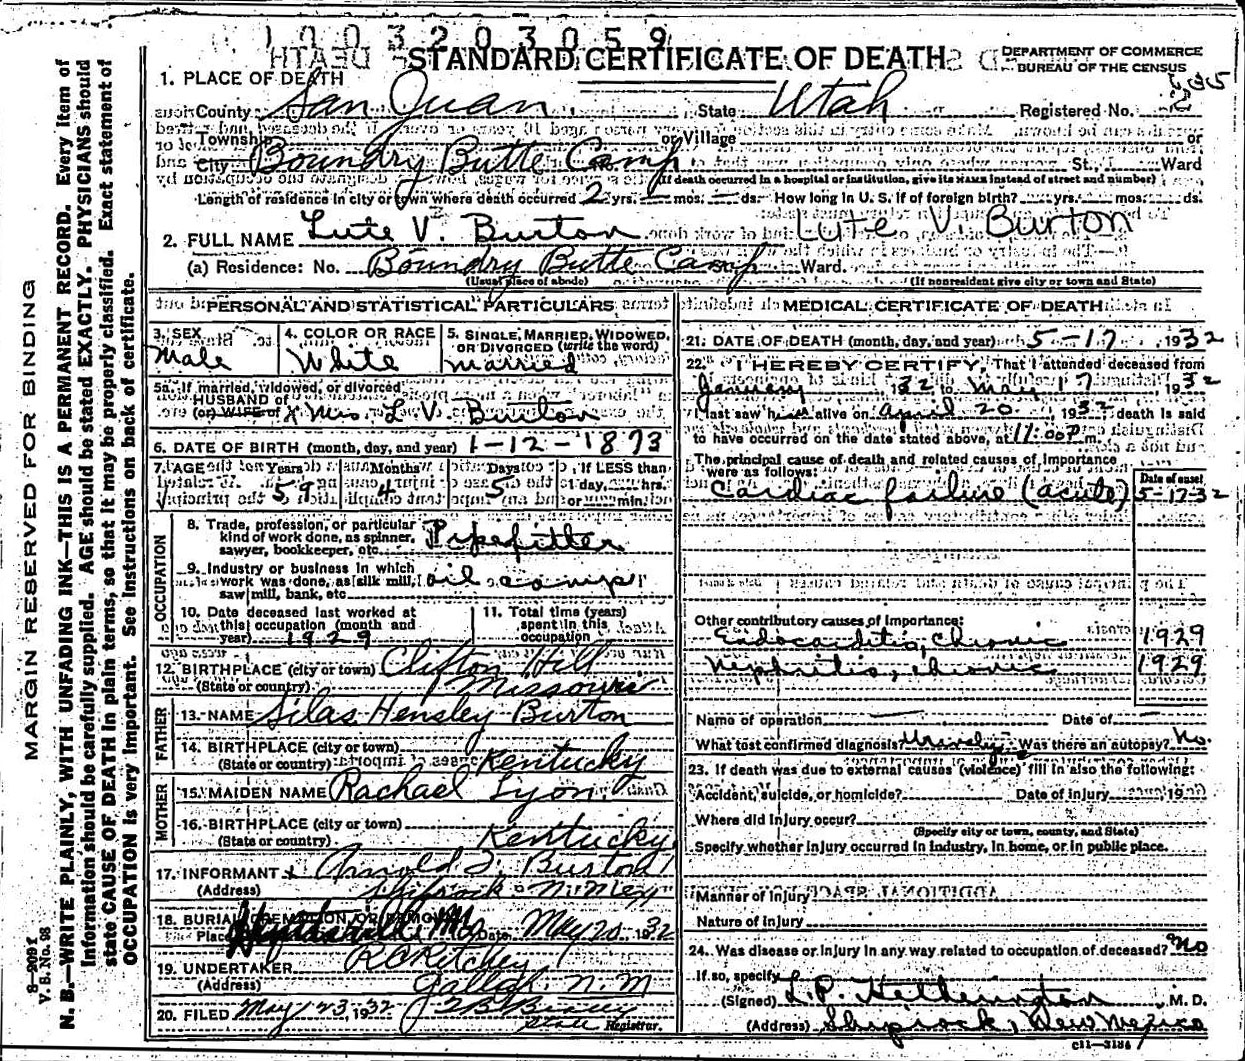 1703203059
STANDARD CERTIFICATE OF DEATH
DEPARTMENT OF COMMERCE
BUREAU OF THE CENSUS
1. PLACE OF DEATH
County San Juan State Utah Registered No. 2
Township or Village or
City Boundry Butte Camp No. St., Ward
(If death occurred in a hospital or institution, give its NAME instead of street and number)
Length of residence in city or town where death occurred 2 yrs. mos. ds. How long in U. S. if of foreign birth? yrs. mos. ds.
2. FULL NAME Lute V. Burton Lute V. Burton
(a) Residence: No. Boundry Butte Camp Ward.
(Usual place of abode) (If nonresident give city or town and State)
PERSONAL AND STATISTICAL PARTICULARS
3. SEX Male
4. COLOR OR RACE White
5. SINGLE, MARRIED, WIDOWED, OR DIVORCED (write the word) Married
5a. If married, widowed, or divorced
HUSBAND of
(or) WIFE of x Mrs. L. V. Burton
6. DATE OF BIRTH (month, day, and year) 1-12-1873
7. AGE Years Months Days If LESS than
59 4 5 1 day, hrs.
or min.
OCCUPATION
8. Trade, profession, or particular
kind of work done, as spinner,
sawyer, bookkeeper, etc. Pipefitter
9. Industry or business in which
work was done, as silk mill,
saw mill, bank, etc. oil camp
10. Date deceased last worked at
this occupation (month and
year) 1929
11. Total time (years)
spent in this
occupation
12. BIRTHPLACE (city or town) Clifton Hill
(State or country) Missouri
FATHER
13. NAME Silas Hensley Burton
14. BIRTHPLACE (city or town)
(State or country) Kentucky
MOTHER
15. MAIDEN NAME Rachael Lyon
16. BIRTHPLACE (city or town)
(State or country) Kentucky
17. INFORMANT x Arnold I. Burton
(Address) Shiprock N. Mex
18. BURIAL, CREMATION, OR REMOVAL
Place Huntsville Mo Date May 20, 1932
19. UNDERTAKER R C Kitchey
(Address) Gallup, N. M
20. FILED May 23, 1932
Registrar.
MEDICAL CERTIFICATE OF DEATH
21. DATE OF DEATH (month, day, and year) 5-17, 1932
22. I HEREBY CERTIFY, That I attended deceased from
1932 to May 17 1932
I last saw him alive on April 20, 1932 death is said
to have occurred on the date stated above, at 11:00 P m.
The principal cause of death and related causes of importance
were as follows:
Date of onset
Cardiac failure (acute) 5-17-32
Other contributory causes of importance:
Endocarditis, chronic 1929
Nephritis, chronic 1929
Name of operation Date of
What test confirmed diagnosis? Was there an autopsy? No.
23. If death was due to external causes (violence) fill in also the following:
Accident, suicide, or homicide? Date of injury 19
Where did injury occur?
(Specify city or town, county, and State)
Specify whether injury occurred in industry, in home, or in public place.
Manner of injury
Nature of injury
24. Was disease or injury in any way related to occupation of deceased? No
If so, specify
(Signed) L. P. Hetherington, M. D.
(Address) Shiprock, New Mexico
c11-3184
MARGIN RESERVED FOR BINDING
N. B.—WRITE PLAINLY, WITH UNFADING INK—THIS IS A PERMANENT RECORD. Every item of
information should be carefully supplied. AGE should be stated EXACTLY. PHYSICIANS should
state CAUSE OF DEATH in plain terms, so that it may be properly classified. Exact statement of
OCCUPATION is very important. See instructions on back of certificate.
V. S. No. 98